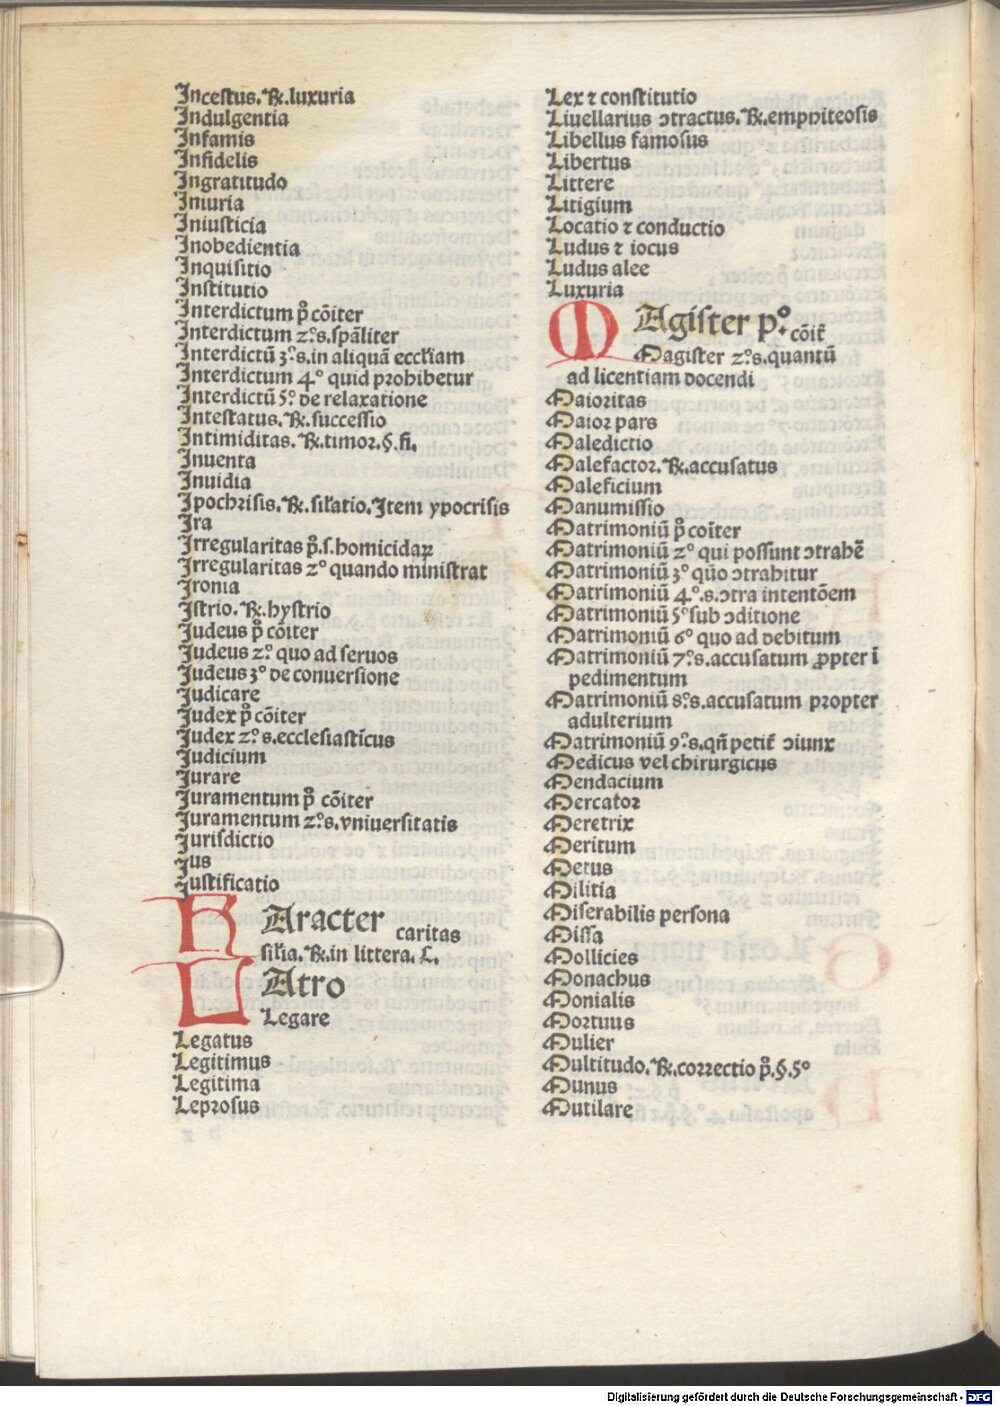 Incestus. ℞. luxuria
Indulgentia
Infamis
Infidelis
Ingratitudo
Iniuria
Iniusticia
Inobedientia
Inquisitio
Institutio
Interdictum p̊ cõiter
Interdictum 2º. s. spãliter
Interdictũ 3º. s. in aliquã eccłiam
Interdictum 4º quid prohibetur
Interdictũ 5º. de relaxatione
Intestatus. ℞. successio
Intimiditas. ℞. timor. §. fi.
Inuenta
Inuidia
Ipochrisis. ℞. sił'atio. Item ypocrisis
Ira
Irregularitas p̊. s. homicidaꝝ
Irregularitas 2º quando ministrat
Ironia
Istrio. ℞. hystrio
Judeus p̊ cõiter
Judeus 2º. quo ad seruos
Judeus 3º de conuersione
Judicare
Judex p̊ cõiter
Judex 2º. s. ecclesiasticus
Judicium
Jurare
Juramentum p̊ cõiter
Juramentum 2º. s. vniuersitatis
Jurisdictio
Jus
Justificatio
KAracter caritas
sił'ia. ℞. in littera. C.
LAtro
Legare
Legatus
Legitimus
Legitima
Leprosus
Lex ⁊ constitutio
Liuellarius ↄtractus. ℞. empniteosis
Libellus famosus
Libertus
Littere
Litigium
Locatio ⁊ conductio
Ludus ⁊ iocus
Ludus alee
Luxuria
MAgister pº. cõit̃
Magister 2º. s. quantũ
ad licentiam docendi
Maioritas
Maior pars
Maledictio
Malefactor. ℞. accusatus
Maleficium
Manumissio
Matrimoniũ p̊ coĩter
Matrimoniũ 2º qui possunt ↄtrahẽ
Matrimoniũ 3º quõ ↄtrahitur
Matrimoniũ 4º. s. ↄtra intentõem
Matrimoniũ 5º sub ↄditione
Matrimoniũ 6º quo ad debitum
Matrimoniũ 7º. s. accusatum ꝓpter ĩ
pedimentum
Matrimoniũ 8º. s. accusatum propter
adulterium
Matrimoniũ 9º. s. qñ petit̃ ↄiunx
Medicus vel chirurgicus
Mendacium
Mercator
Meretrix
Meritum
Metus
Militia
Miserabilis persona
Missa
Mollicies
Monachus
Monialis
Mortuus
Mulier
Multitudo. ℞. correctio p̊. §. 5º
Munus
Mutilare
Digitalisierung gefördert durch die Deutsche Forschungsgemeinschaft - DFG